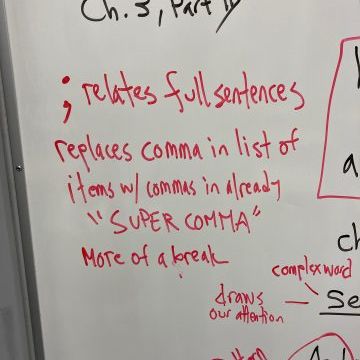 Ch. 3, Part IV
; relates full sentences
replaces comma in list of
items w/ commas in already
"SUPER COMMA"
More of a break
a
ch
complex word
draws
our attention
Se